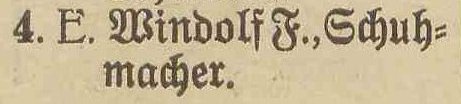 4. E. Windolf F., Schuh-
macher.